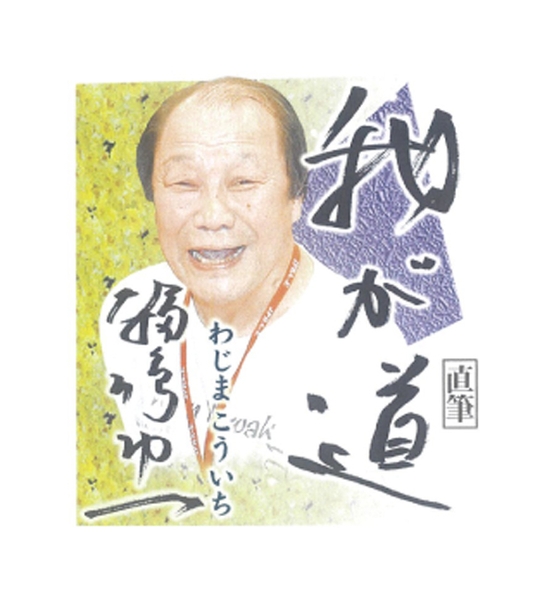 我が道
直筆
わじまこういち
輪島功一